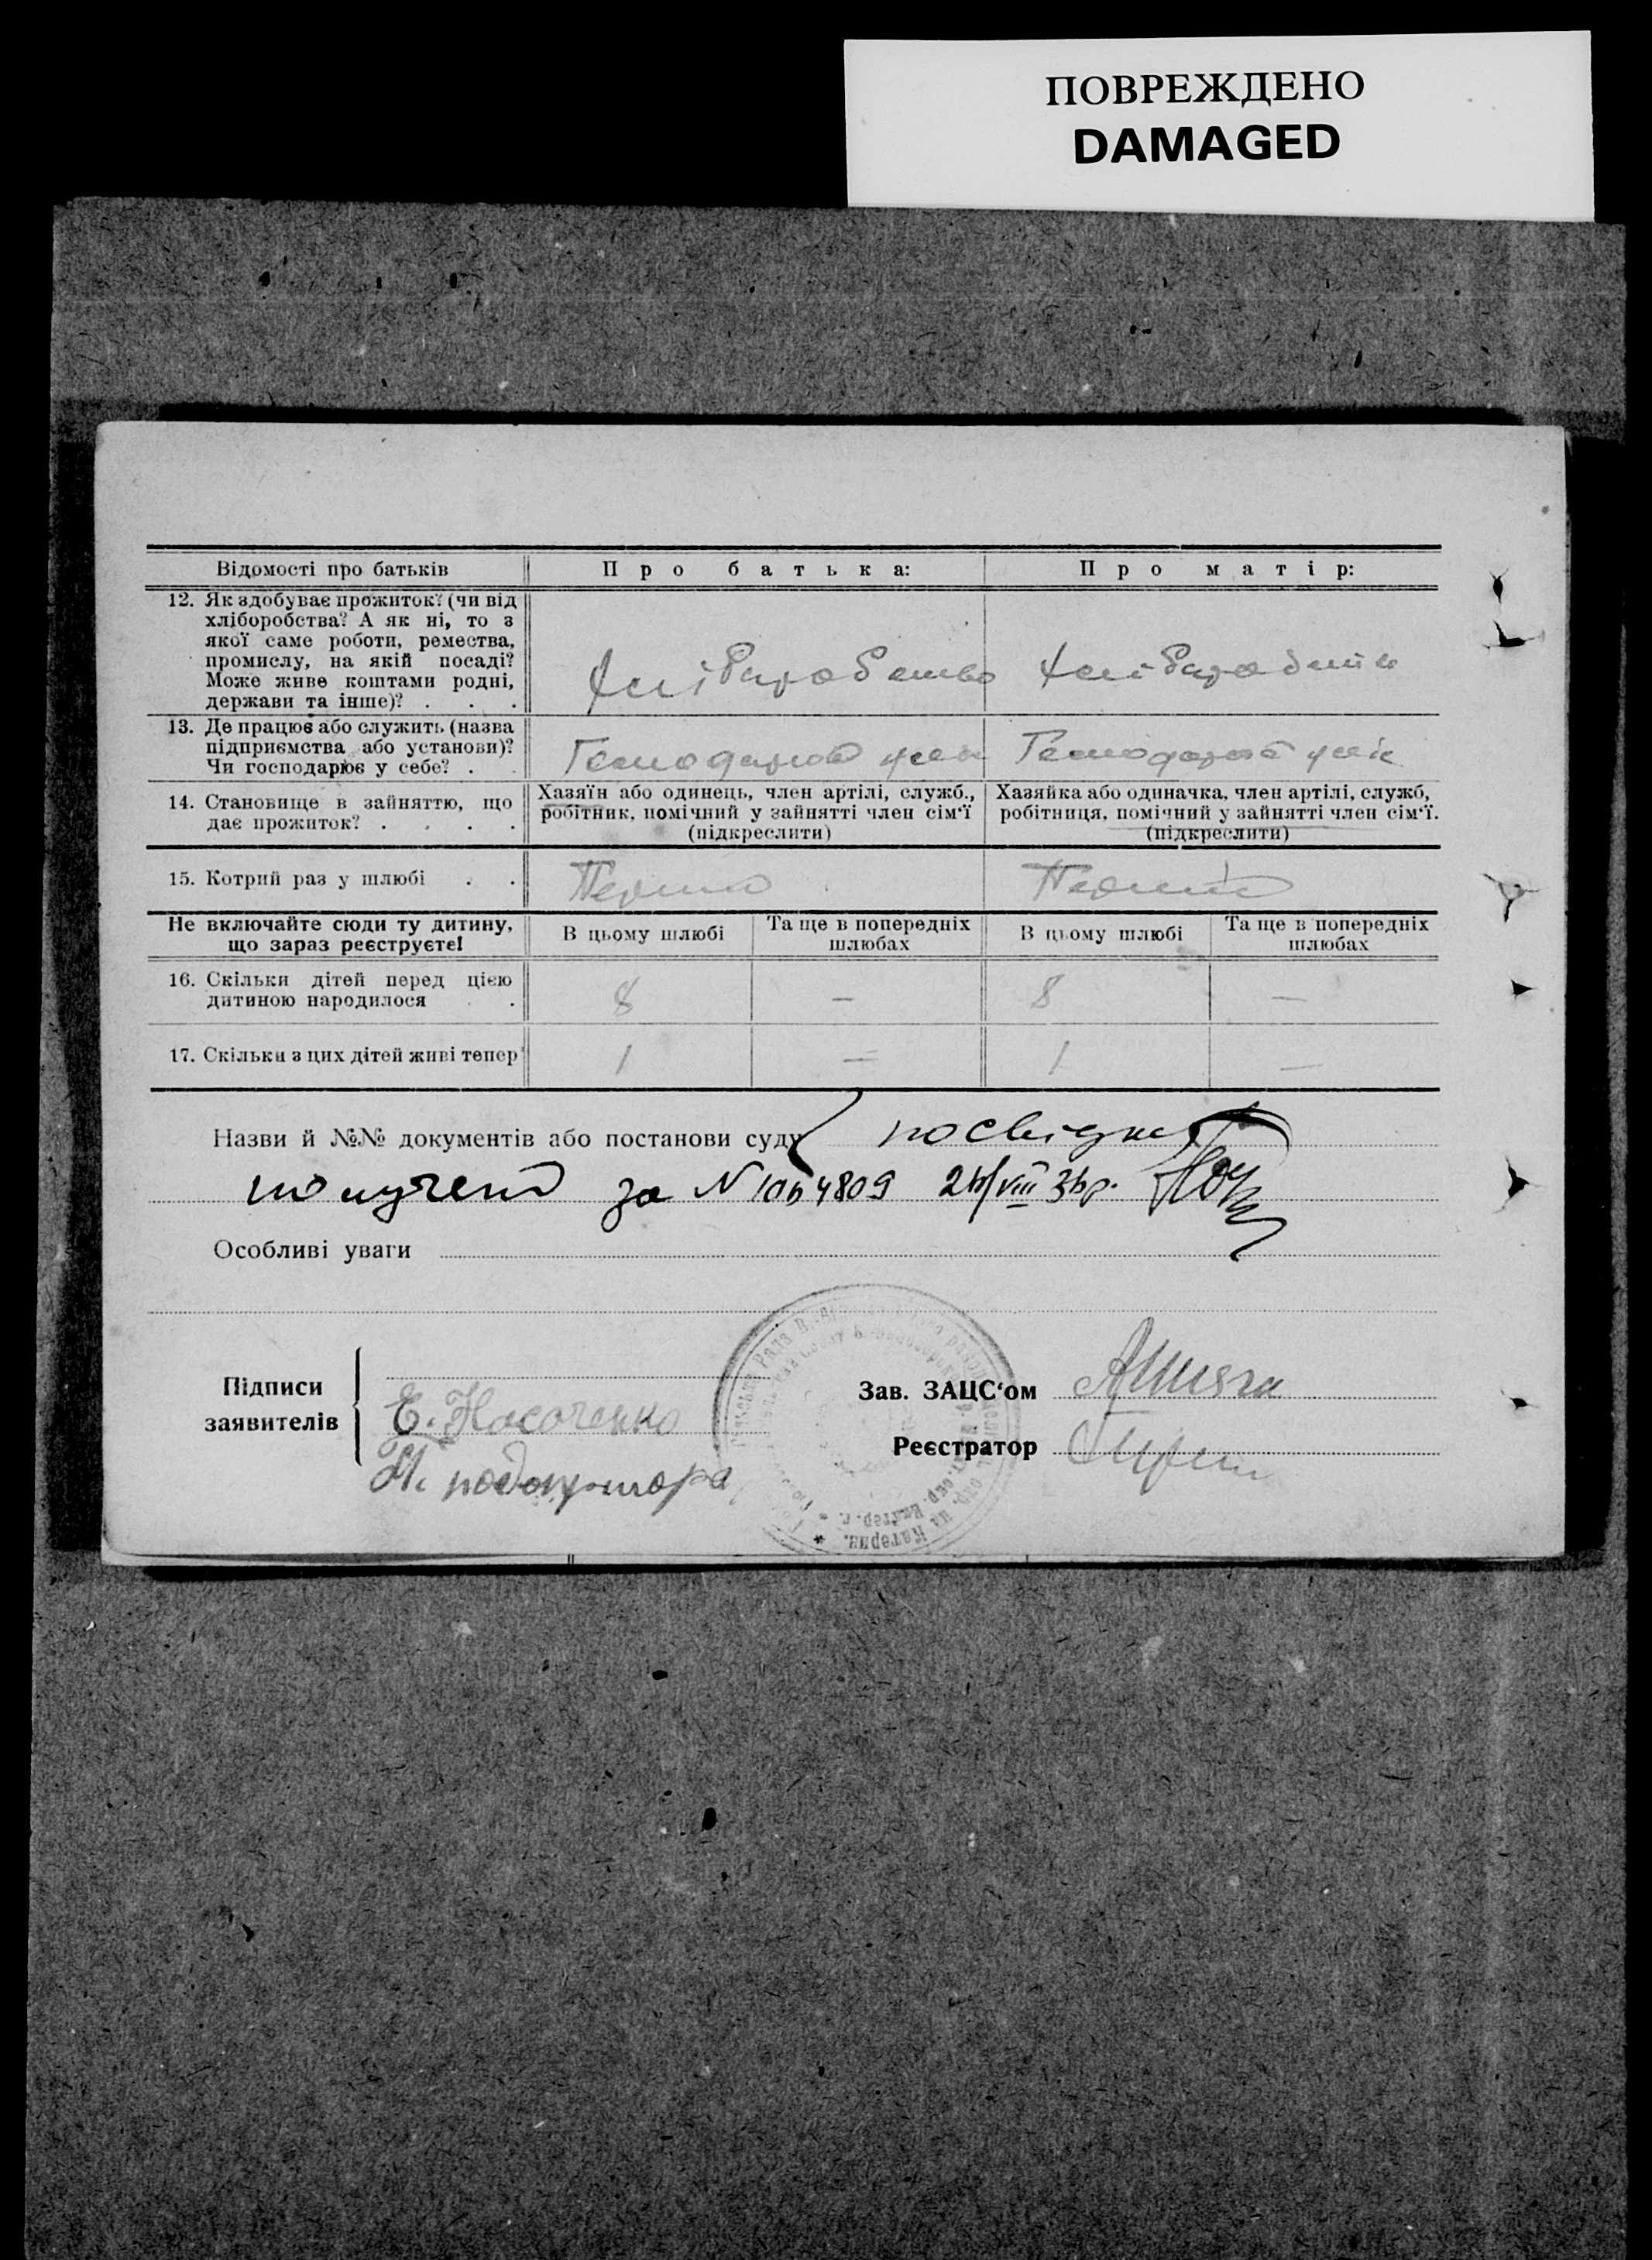 ПОВРЕЖДЕНО
DAMAGED
Відомості про батьків
Про батька:
Про матір:
12. Як здобуває прожиток? (чи від
хліборобства? А як ні, то з
якої саме роботи, ремества,
промислу, на якій посаді?
Може живе коштами родні,
держави та інше)? . . .
Хліборобство
Хліборобство
13. Де працює або служить (назва
підприємства або установи)?
Чи господарює у себе? . .
14. Становище в зайняттю, що
дає прожиток? . . . .
Хазяїн або одинець, член артілі, служб.,
робітник, помічний у зайнятті член сім'ї
(підкреслити)
Хазяйка або одиначка, член артілі, служб,
робітниця, помічний у зайнятті член сім'ї.
(підкреслити)
15. Котрий раз у шлюбі . .
Перший
Перший
Не включайте сюди ту дитину,
що зараз реєструєте!
В цьому шлюбі
Та ще в попередніх
шлюбах
В цьому шлюбі
Та ще в попередніх
шлюбах
16. Скільки дітей перед цією
дитиною народилося . .
8
—
8
—
17. Скільки з цих дітей живі тепер
1
—
1
—
Назви й №№ документів або постанови суду посвідку
получено за N 1064809 26/VIII 36р.
Особливі уваги
Підписи
заявителів
Є. Носаченко
Зав. ЗАЦС'ом
Реєстратор